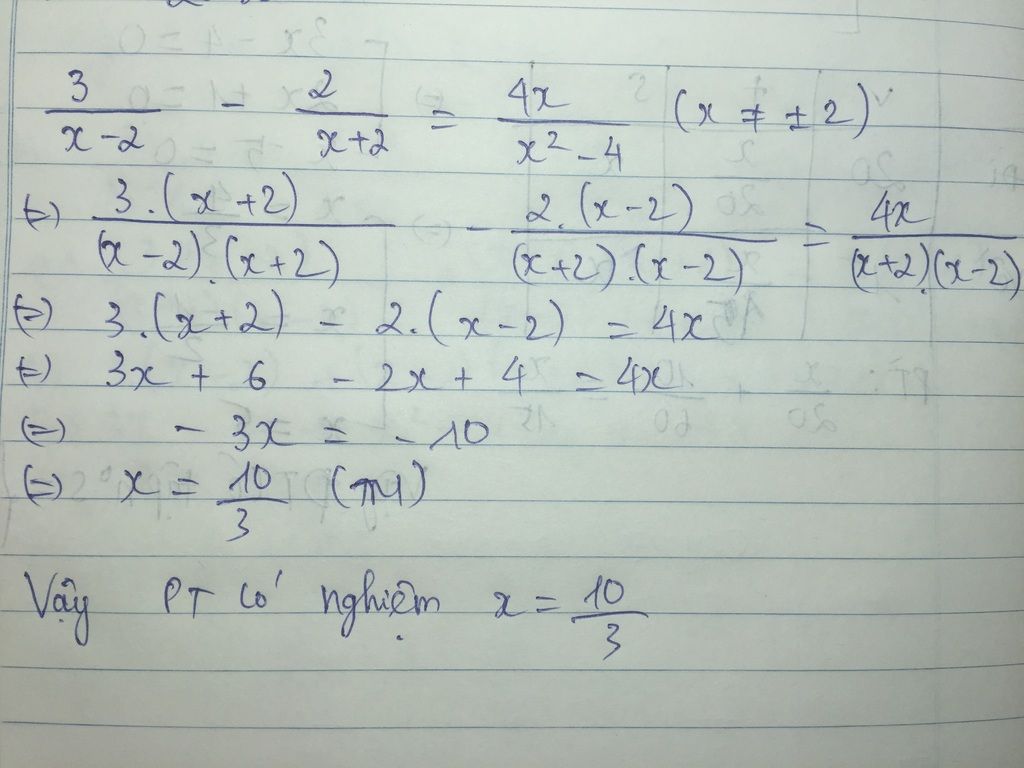 3/(x-2) - 2/(x+2) = 4x/(x²-4) (x ≠ ±2)
(=) 3.(x+2)/((x-2).(x+2)) - 2.(x-2)/((x+2).(x-2)) = 4x/((x+2).(x-2))
(=) 3.(x+2) - 2.(x-2) = 4x
(=) 3x + 6 - 2x + 4 = 4x
(=) - 3x = -10
(=) x = 10/3 (TM)
Vậy PT có nghiệm x = 10/3